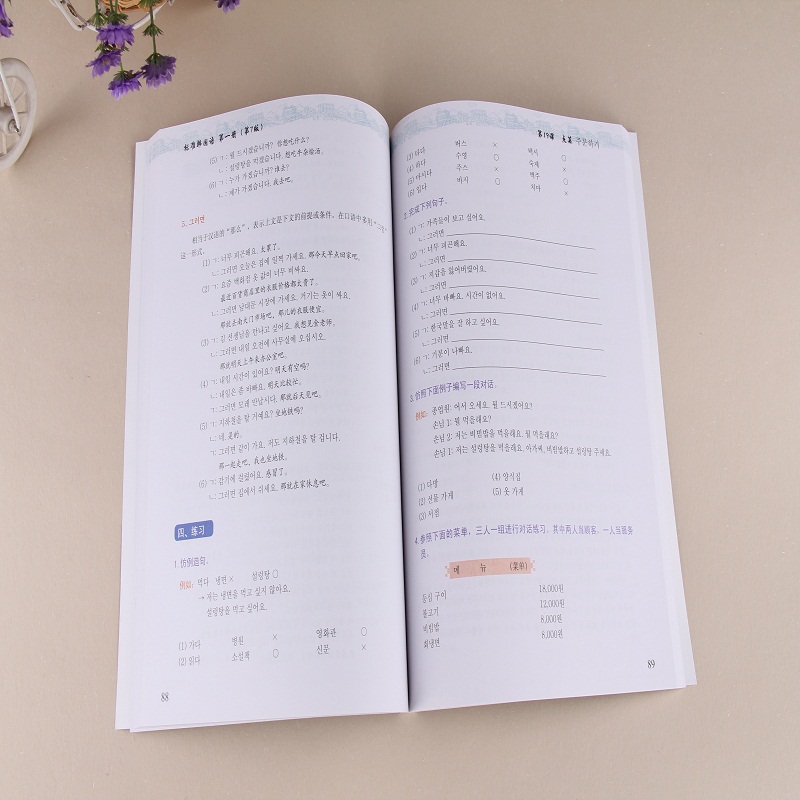 标准韩国语 第一册（第7版）
(5) ㄱ: 뭘 드시겠습니까? 你想吃什么?
ㄴ: 설렁탕을 먹겠습니다. 想吃牛杂烩汤。
(6) ㄱ: 누가 가겠습니까? 谁去?
ㄴ: 제가 가겠습니다. 我去吧。
5. 그러면
相当于汉语的“那么”，表示上文是下文的前提或条件。在口语中多用“그럼”
这一形式。
(1) ㄱ: 너무 피곤해요. 太累了。
ㄴ: 그러면 오늘은 집에 일찍 가세요. 那今天早点回家吧。
(2) ㄱ: 요즘 백화점 옷 값이 너무 비싸요.
最近百货商店里的衣服价格都太贵了。
ㄴ: 그러면 남대문 시장에 가세요. 거기는 옷이 싸요.
那就去南大门市场吧，那儿的衣服便宜。
(3) ㄱ: 김 선생님을 만나고 싶어요. 我想见金老师。
ㄴ: 그러면 내일 오전에 사무실에 오십시오.
那就明天上午来办公室吧。
(4) ㄱ: 내일 시간이 있어요? 明天有空吗?
ㄴ: 내일은 좀 바빠요. 明天比较忙。
ㄱ: 그러면 모레 만납시다. 那就后天见吧。
(5) ㄱ: 지하철을 탈 거예요? 坐地铁吗?
ㄴ: 네. 是的。
ㄱ: 그러면 같이 가요. 저도 지하철을 탈 겁니다.
那一起走吧，我也坐地铁。
(6) ㄱ: 감기에 걸렸어요. 感冒了。
ㄴ: 그러면 집에서 쉬세요. 那就在家休息吧。
四、练习
1. 仿例造句。
例如: 먹다 냉면 × 설렁탕 ○
→ 저는 냉면을 먹고 싶지 않아요.
설렁탕을 먹고 싶어요.
(1) 가다 병원 × 영화관 ○
(2) 읽다 소설책 ○ 신문 ×
88
第19课 点菜 주문하기
(3) 타다 버스 × 택시 ○
(4) 하다 수영 ○ 숙제 ×
(5) 마시다 주스 × 맥주 ○
(6) 입다 바지 ○ 치마 ×
2. 完成下列句子。
(1) ㄱ: 가족들이 보고 싶어요.
ㄴ: 그러면
(2) ㄱ: 너무 피곤해요.
ㄴ: 그러면
(3) ㄱ: 지갑을 잃어버렸어요.
ㄴ: 그러면
(4) ㄱ: 너무 바빠요. 시간이 없어요.
ㄴ: 그러면
(5) ㄱ: 한국말을 잘 하고 싶어요.
ㄴ: 그러면
(6) ㄱ: 기분이 나빠요.
ㄴ: 그러면
3. 仿照下面例子编写一段对话。
例如: 종업원: 어서 오세요. 뭘 드시겠어요?
손님 1: 뭘 먹을래요?
손님 2: 저는 비빔밥을 먹을래요. 뭘 먹을래요?
손님 1: 저는 설렁탕을 먹을래요. 아가씨, 비빔밥하고 설렁탕 주세요.
(1) 다방 (4) 양식집
(2) 선물 가게 (5) 옷 가게
(3) 서점
4. 参照下面的菜单，三人一组进行对话练习。其中两人当顾客，一人当服务
员。
메 뉴 (菜单)
등심 구이 18,000원
불고기 12,000원
비빔밥 8,000원
회냉면 8,000원
89